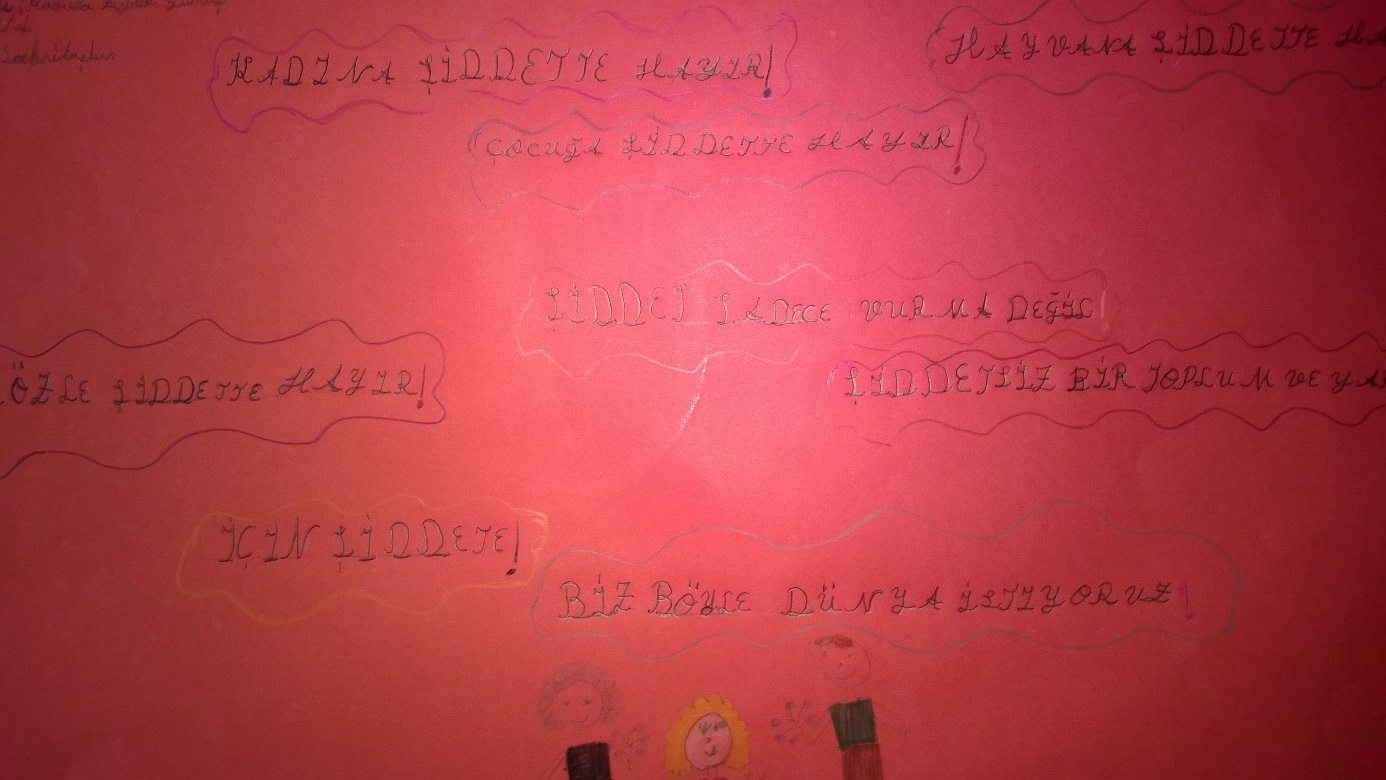 KADINA ŞİDDETTE HAYIR!
HAYVANA ŞİDDETTE
ÇOCUĞA ŞİDDETTE HAYIR!
ŞİDDET SADECE VURMA DEĞİL
ÖZLE ŞİDDETTE HAYIR!
ŞİDDETSİZ BİR TOPLUM VE
İÇIN ŞİDDETE!
BİZ BÖYLE DÜNYA İSTIYORUZ!